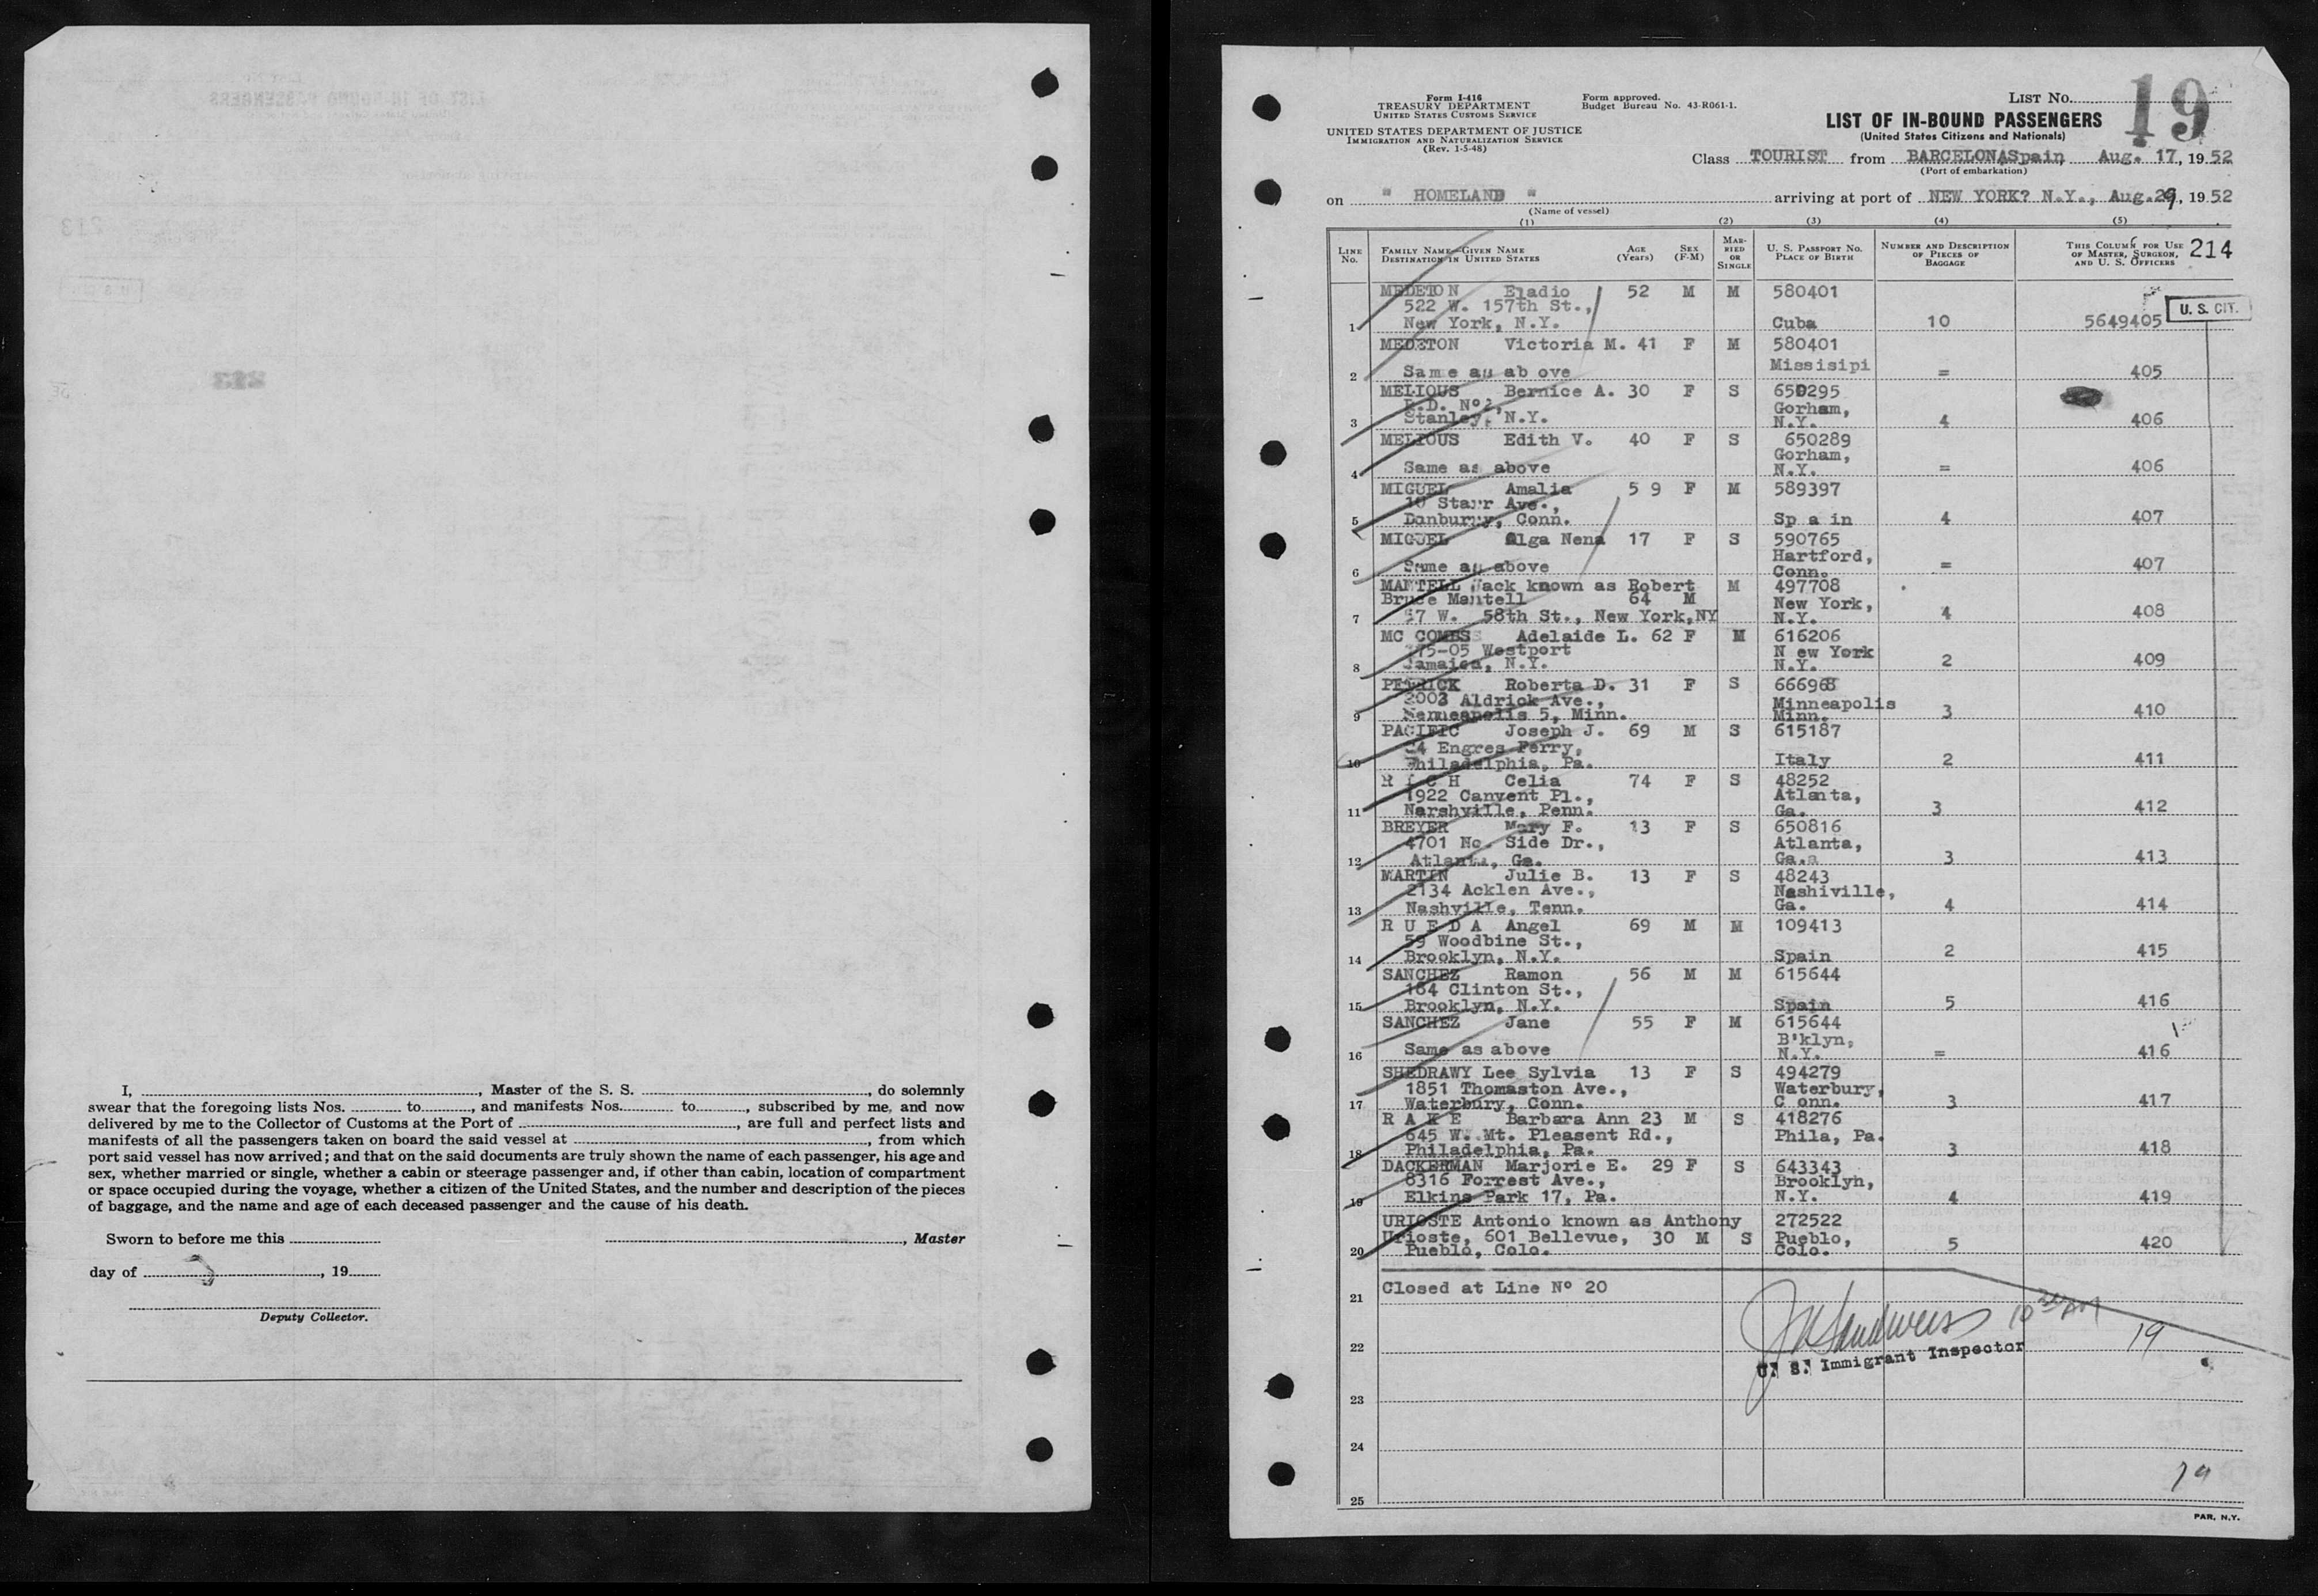 I, ______, Master of the S. S. ______, do solemnly
swear that the foregoing lists Nos. ______ to ______, and manifests Nos. ______ to ______, subscribed by me, and now
delivered by me to the Collector of Customs at the Port of ______, are full and perfect lists and
manifests of all the passengers taken on board the said vessel at ______, from which
port said vessel has now arrived; and that on the said documents are truly shown the name of each passenger, his age and
sex, whether married or single, whether a cabin or steerage passenger and, if other than cabin, location of compartment
or space occupied during the voyage, whether a citizen of the United States, and the number and description of the pieces
of baggage, and the name and age of each deceased passenger and the cause of his death.
Sworn to before me this ______ ______, Master
day of ______, 19____
Deputy Collector.
Form I-416
TREASURY DEPARTMENT
UNITED STATES CUSTOMS SERVICE
UNITED STATES DEPARTMENT OF JUSTICE
IMMIGRATION AND NATURALIZATION SERVICE
(Rev. 1-5-48)
Form approved.
Budget Bureau No. 43-R061-1.
LIST NO. 19
LIST OF IN-BOUND PASSENGERS
(United States Citizens and Nationals)
Class TOURIST from BARCELONA, Spain, Aug. 17, 1952
(Port of embarkation)
on " HOMELAND " arriving at port of NEW YORK? N.Y., Aug. 29, 1952
(Name of vessel)
(1) (2) (3) (4) (5)
LINE NO.
FAMILY NAME—GIVEN NAME
DESTINATION IN UNITED STATES
AGE (Years)
SEX (F-M)
MARRIED OR SINGLE
U. S. PASSPORT NO.
PLACE OF BIRTH
NUMBER AND DESCRIPTION OF PIECES OF BAGGAGE
THIS COLUMN FOR USE OF MASTER, SURGEON, AND U. S. OFFICERS
214
U. S. CIT.
MEDETON Eladio 52 M M 580401
522 W. 157th St.,
1 New York, N.Y. Cuba 10 5649405
MEDETON Victoria M. 41 F M 580401
Missisipi
2 Same au ab ove = 405
MELIOUS Bernice A. 30 F S 650295
R.D. Nº 2, Gorham,
3 Stanley, N.Y. N.Y. 4 406
MELIOUS Edith V. 40 F S 650289
Gorham,
4 Same as above N.Y. = 406
MIGUEL Amalia 5 9 F M 589397
10 Starr Ave.,
5 Danburry, Conn. Sp a in 4 407
MIGUEL Olga Nena 17 F S 590765
Hartford,
6 Same au above Conn. = 407
MANTELL Jack known as Robert M 497708
Bruce Mantell 64 M New York,
7 57 W. 58th St., New York, NY N.Y. 4 408
MC COMBS Adelaide L. 62 F M 616206
175-05 Westport N ew York
8 Jamaica, N.Y. N.Y. 2 409
Roberta D. 31 F S 666968
2003 Aldrick Ave., Minneapolis
9 5, Minn. Minn. 3 410
PACIFIC Joseph J. 69 M S 615187
Engres Ferry,
10 Philadelphia, Pa. Italy 2 411
R I C H Celia 74 F S 48252
1922 Canvent Pl., Atlanta,
11 Narshville, Penn. Ga. 3 412
BREYER Mary F. 13 F S 650816
4701 No. Side Dr., Atlanta,
12 Atlanta, Ga. Ga.a 3 413
MARTIN Julie B. 13 F S 48243
2134 Acklen Ave., Nashiville,
13 Nashville, Tenn. Ga. 4 414
R U E D A Angel 69 M M 109413
59 Woodbine St.,
14 Brooklyn, N.Y. Spain 2 415
SANCHEZ Ramon 56 M M 615644
164 Clinton St.,
15 Brooklyn, N.Y. Spain 5 416
SANCHEZ Jane 55 F M 615644
B'klyn,
16 Same as above N.Y. = 416
SHEDRAWY Lee Sylvia 13 F S 494279
1851 Thomaston Ave., Waterbury,
17 Waterbury, Conn. C onn. 3 417
R A K E Barbara Ann 23 M S 418276
645 W. Mt. Pleasent Rd., Phila, Pa.
18 Philadelphia, Pa. 3 418
DACKERMAN Marjorie E. 29 F S 643343
8316 Forrest Ave., Brooklyh,
19 Elkins Park 17, Pa. N.Y. 4 419
URIOSTE Antonio known as Anthony 272522
Urioste, 601 Bellevue, 30 M S Pueblo,
20 Pueblo, Colo. Colo. 5 420
21 Closed at Line Nº 20
10 30 AM
22 19
U. S. Immigrant Inspector
23
24
19
25
PAR, N.Y.